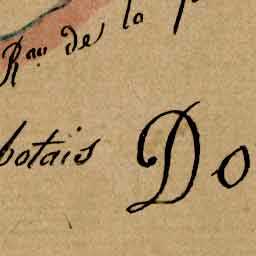 R.au de la
botais Do